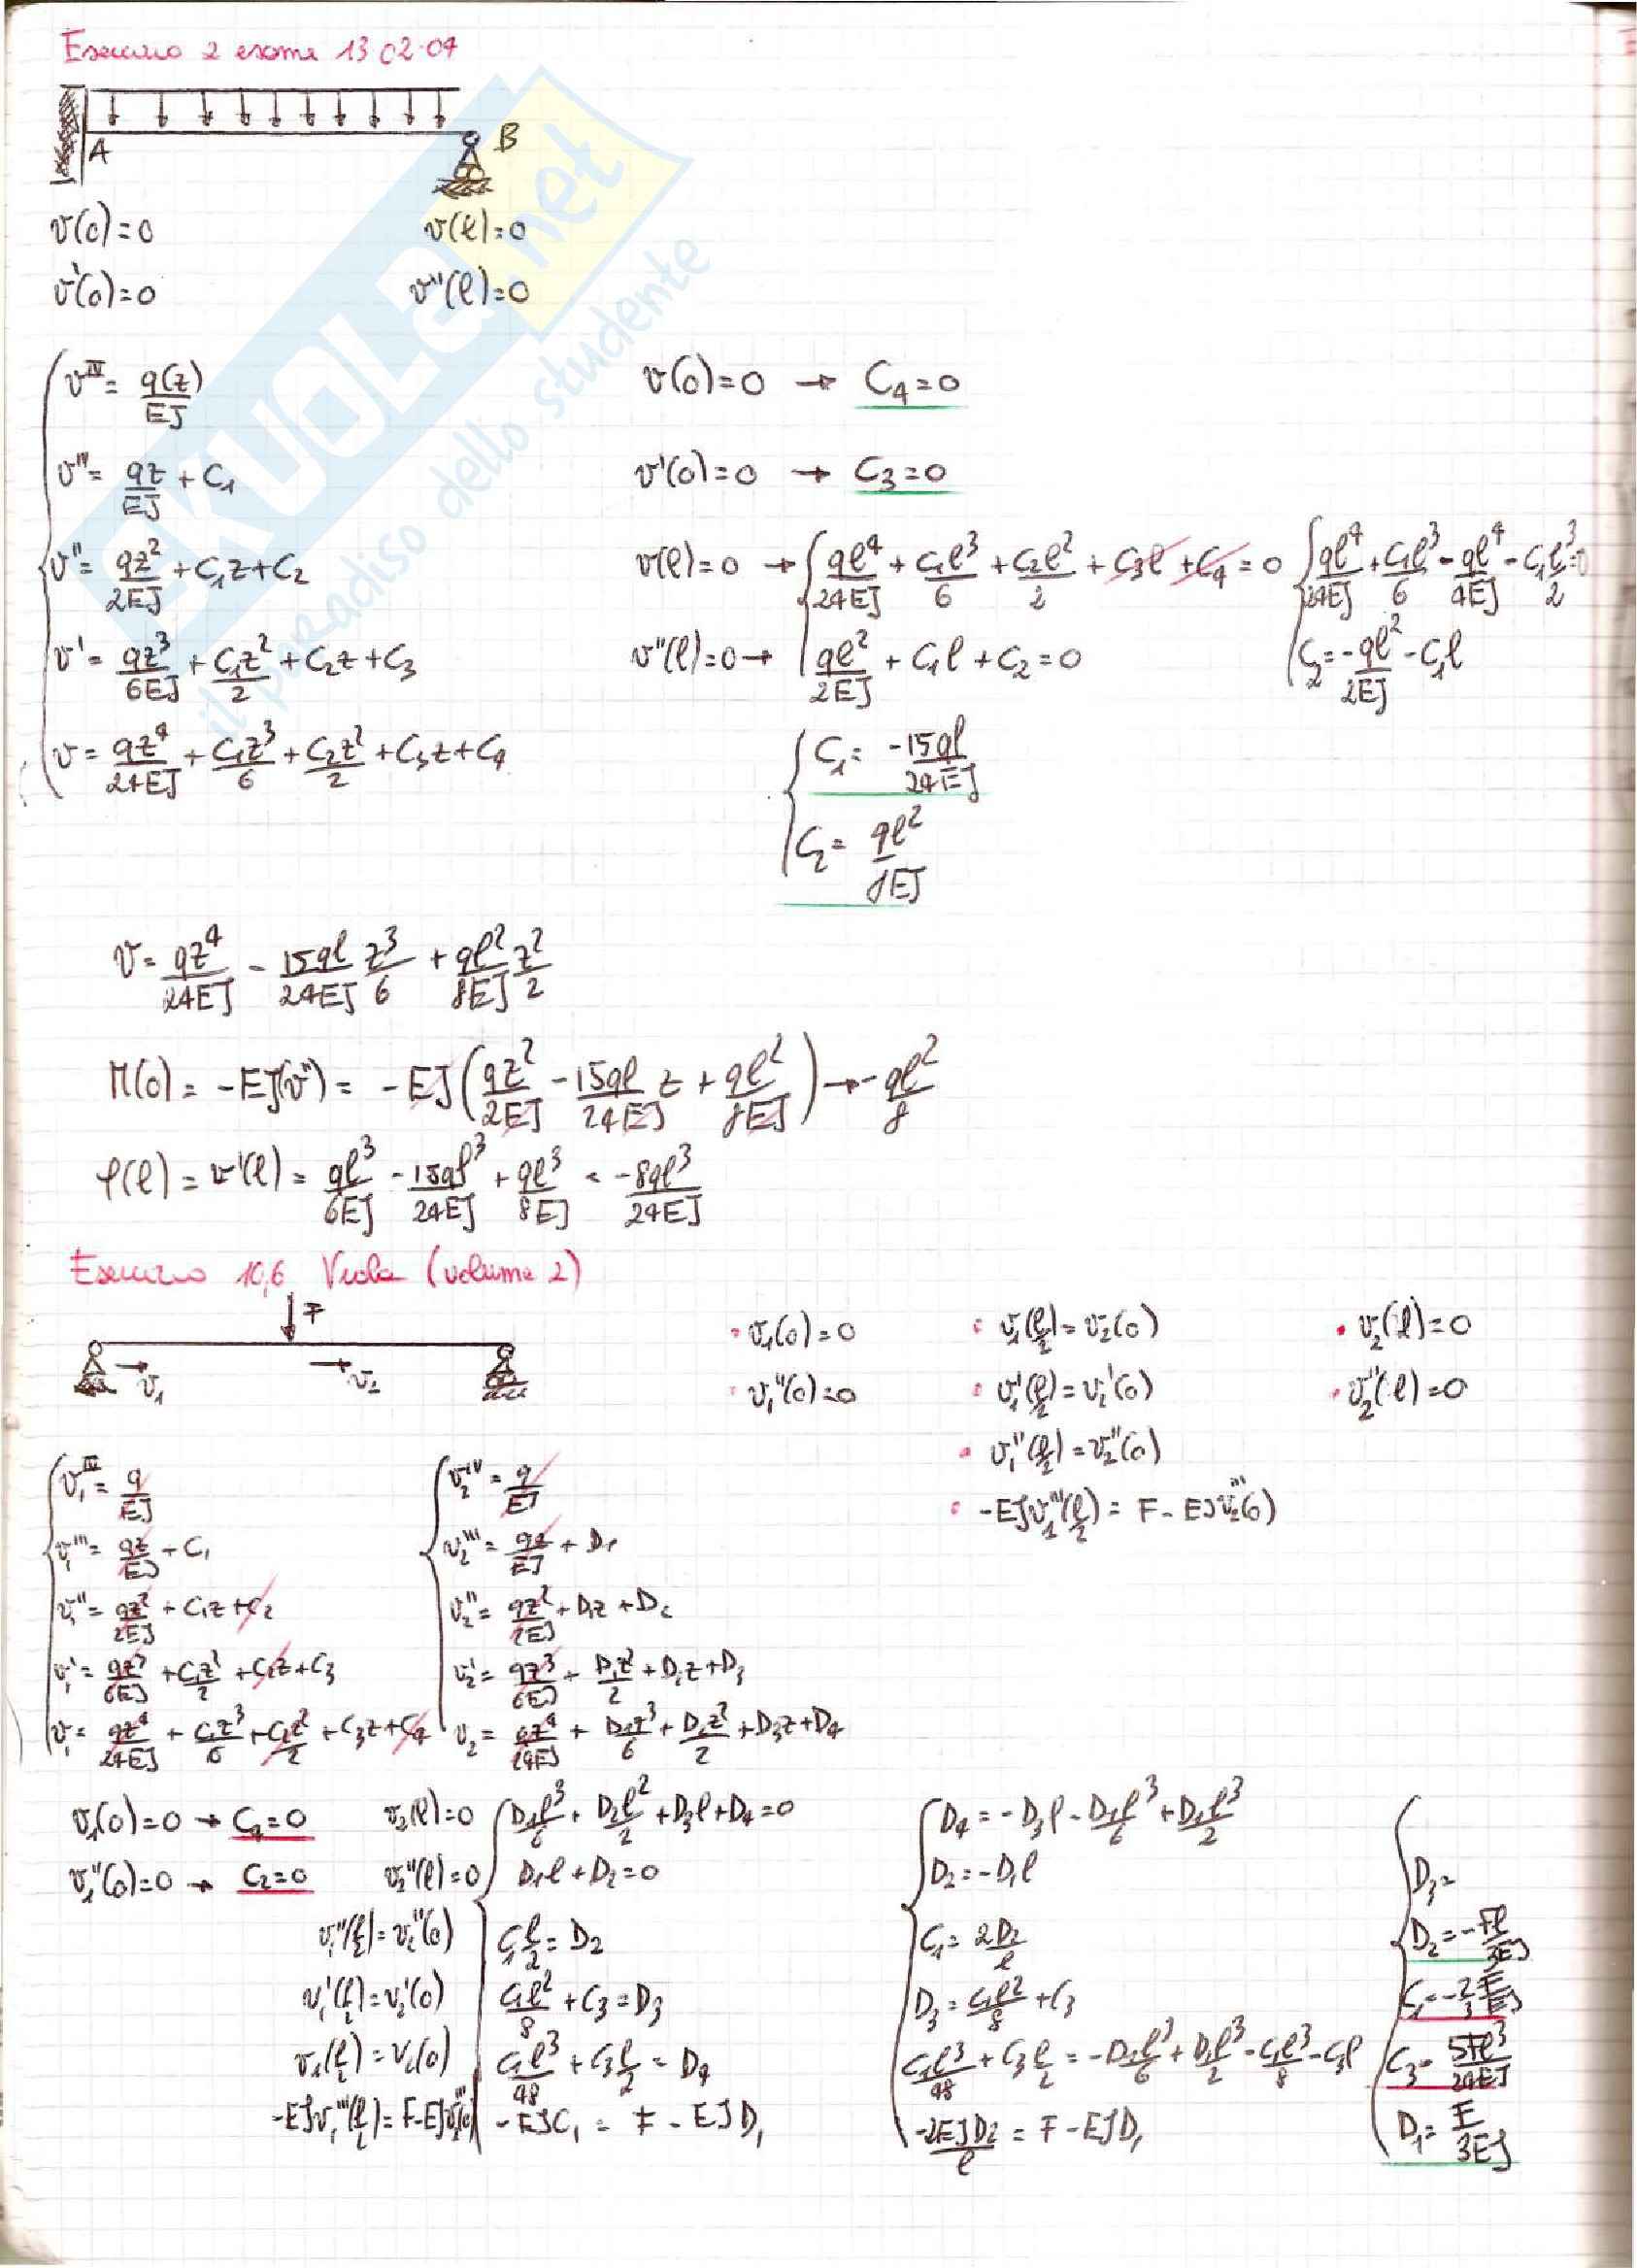 Esercizio 2 esame 13 02·07
A
B
v(0)=0 v(l)=0
v'(0)=0 v''(l)=0
SKUOLA.net
il paradiso dello studente
v^IV = q(z)/EJ
v''' = qz/EJ + C1
v'' = qz²/2EJ + C1z + C2
v' = qz³/6EJ + C1z²/2 + C2z + C3
v = qz⁴/24EJ + C1z³/6 + C2z²/2 + C3z + C4
v(0)=0 → C4=0
v'(0)=0 → C3=0
v(l)=0 → ql⁴/24EJ + C1l³/6 + C2l²/2 + C3l + C4 = 0
v''(l)=0 → ql²/2EJ + C1l + C2 = 0
ql⁴/24EJ + C1l³/6 - ql⁴/4EJ - C1l³/2 = 0
C2 = -ql²/2EJ - C1l
C1 = -15ql/24EJ
C2 = ql²/8EJ
v = qz⁴/24EJ - 15ql/24EJ z³/6 + ql²/8EJ z²/2
M(0) = -EJ(v'') = -EJ(qz²/2EJ - 15ql/24EJ z + ql²/8EJ) → -ql²/8
φ(l) = v'(l) = ql³/6EJ - 15ql³/24EJ + ql³/8EJ = -8ql³/24EJ
Esercizio 10,6 Viola (volume 2)
F
v1 v2
v1(0)=0
v1''(0)=0
v1(l/2) = v2(0)
v1'(l/2) = v2'(0)
v1''(l/2) = v2''(0)
-EJv1'''(l/2) = F - EJv2'''(0)
v2(l)=0
v2''(l)=0
v1^IV = q/EJ
v1''' = qz/EJ + C1
v1'' = qz²/2EJ + C1z + C2
v1' = qz³/6EJ + C1z²/2 + C2z + C3
v1 = qz⁴/24EJ + C1z³/6 + C2z²/2 + C3z + C4
v2^IV = q/EJ
v2''' = qz/EJ + D1
v2'' = qz²/2EJ + D1z + D2
v2' = qz³/6EJ + D1z²/2 + D2z + D3
v2 = qz⁴/24EJ + D1z³/6 + D2z²/2 + D3z + D4
v1(0)=0 → C4=0
v1''(0)=0 → C2=0
v2(l)=0 D1l³/6 + D2l²/2 + D3l + D4 = 0
v2''(l)=0 D1l + D2 = 0
v1''(l/2) = v2''(0) C1 l/2 = D2
v1'(l/2) = v2'(0) C1l²/8 + C3 = D3
v1(l/2) = v2(0) C1l³/48 + C3 l/2 = D4
-EJv1'''(l/2) = F - EJv2'''(0) -EJC1 = F - EJD1
D4 = -D3l - D1l³/6 + D1l³/2
D2 = -D1l
C1 = 2D2/l
D3 = C1l²/8 + C3
C1l³/48 + C3 l/2 = -D1l³/6 + D1l³/2 - C1l³/8 - C3l
-2EJD2/l = F - EJD1
D3 =
D2 = -Fl/3EJ
C1 = -2/3 F/EJ
C3 = 5Fl³/24EJ
D1 = F/3EJ